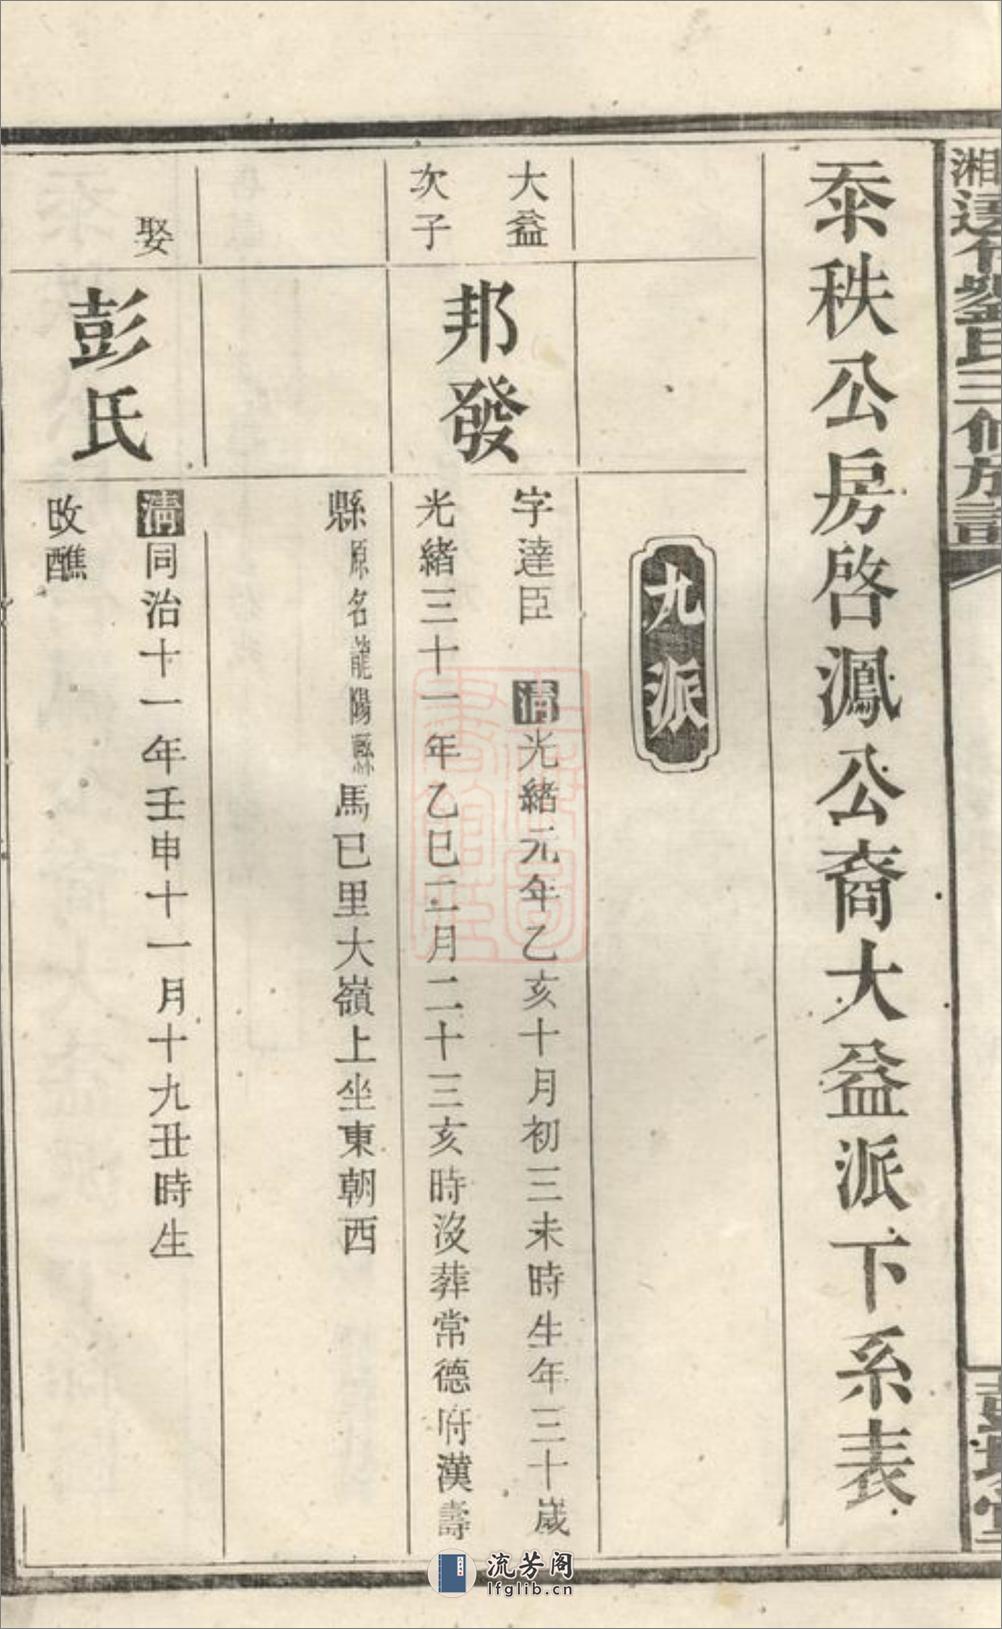 泰秩公房啓鳳公裔大益派下系表
九派
大益
次子
邦發
字達臣 清光緒元年乙亥十月初三未時生年三十歲
光緒三十一年乙巳二月二十三亥時沒葬常德府漢壽
縣原名龍陽縣馬巳里大嶺上坐東朝西
娶
彭氏
清同治十一年壬申十一月十九丑時生
改醮
流芳阁
lfglib.cn